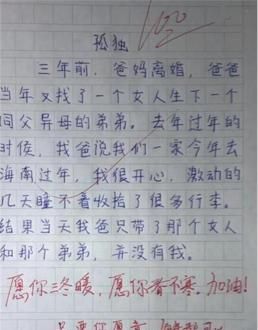 100
孤独
三年前，爸妈离婚，爸爸
当年又找了一个女人生下一个
同父异母的弟弟。去年过年的
时候，我爸说我们一家今年去
海南过年，我很开心，激动的
几天睡不着收拾了很多行李。
结果当天我爸只带了那个女人
和那个弟弟，并没有我。
愿你三冬暖，愿你春不寒。加油！
只要你愿意